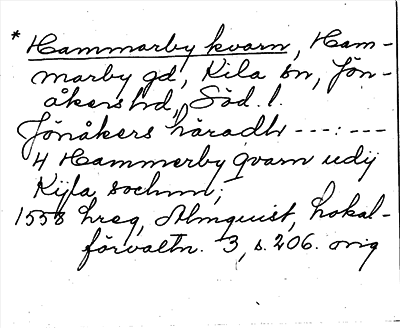 * Hammarby kvarn, Ham-
marby gd, Kila sn, Jön-
åkers hd, Söd. l.
Jönåkers häradh ---:---
4 Hammerby qvarn udij
Kijla sochnn;
1558 hreg, Almquist, Lokal-
förvaltn. 3, s. 206. orig